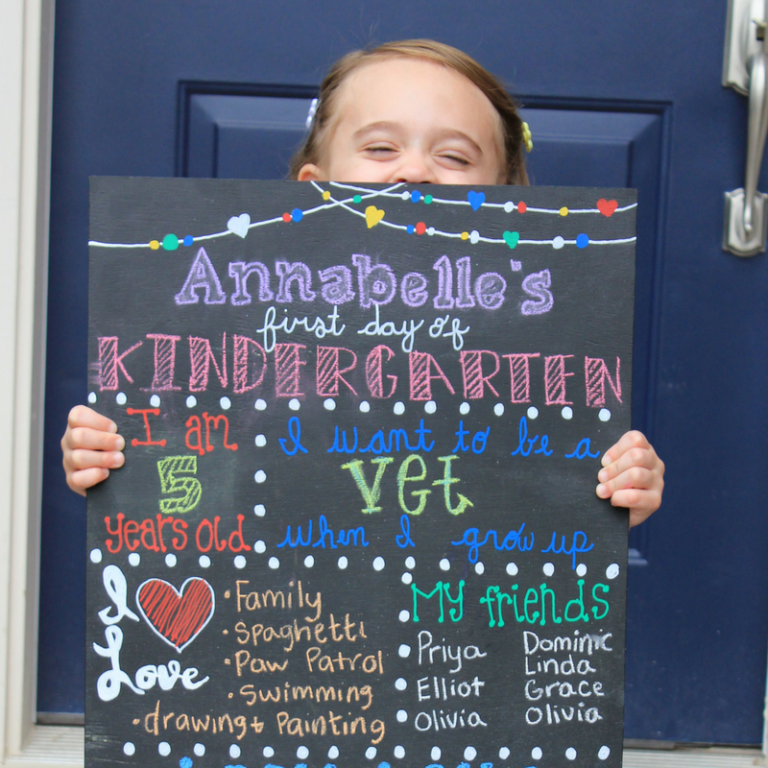 Annabelle's
first day of
KINDERGARTEN
I am
5
years old
I want to be a
vet
when I grow up
I
Love
• Family
• Spaghetti
• Paw Patrol
• Swimming
• drawing + Painting
My friends
Priya
Elliot
Olivia
Dominic
Linda
Grace
Olivia